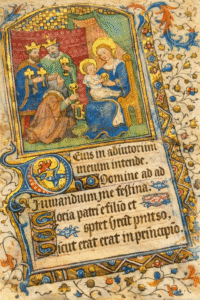 Eus in adiutorium
meum intende.
Domine ad ad
iuuandum me festina.
Gloria patri et filio et
spiritui
Sicut erat erat in principio.